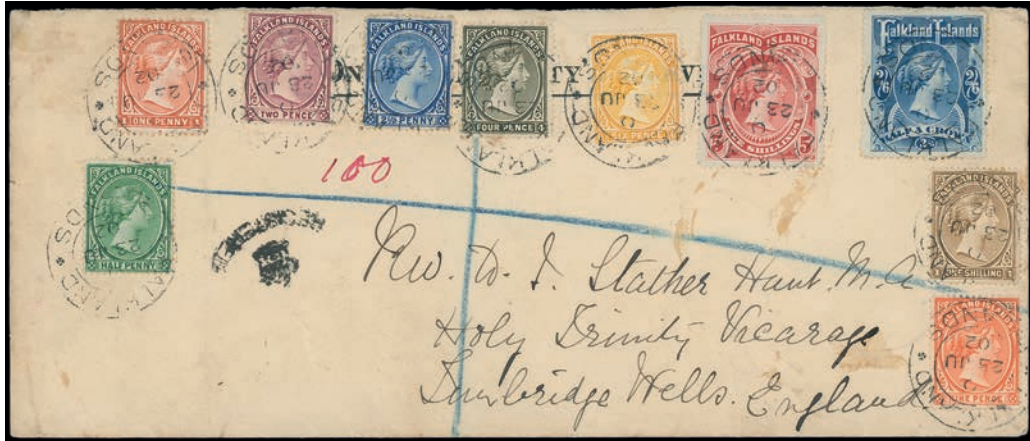 FALKLAND ISLANDS
ONE PENNY
FALKLAND ISLANDS
TWO PENCE
FALKLAND ISLANDS
2½ PENNY
FALKLAND ISLANDS
4 FOUR PENCE 4
FALKLAND ISLANDS
SIX PENCE
FALKLAND ISLANDS
5/ FIVE SHILLINGS 5/
Falkland Islands
2/6 2/6
HALF A CROWN
FALKLAND ISLANDS
HALF PENNY
FALKLAND ISLANDS
1 ONE SHILLING 1
FALKLAND ISLANDS
NINE PENCE
100
Rev. D. J. Stather Hunt M.A
Holy Trinity Vicarage
Tunbridge Wells. England